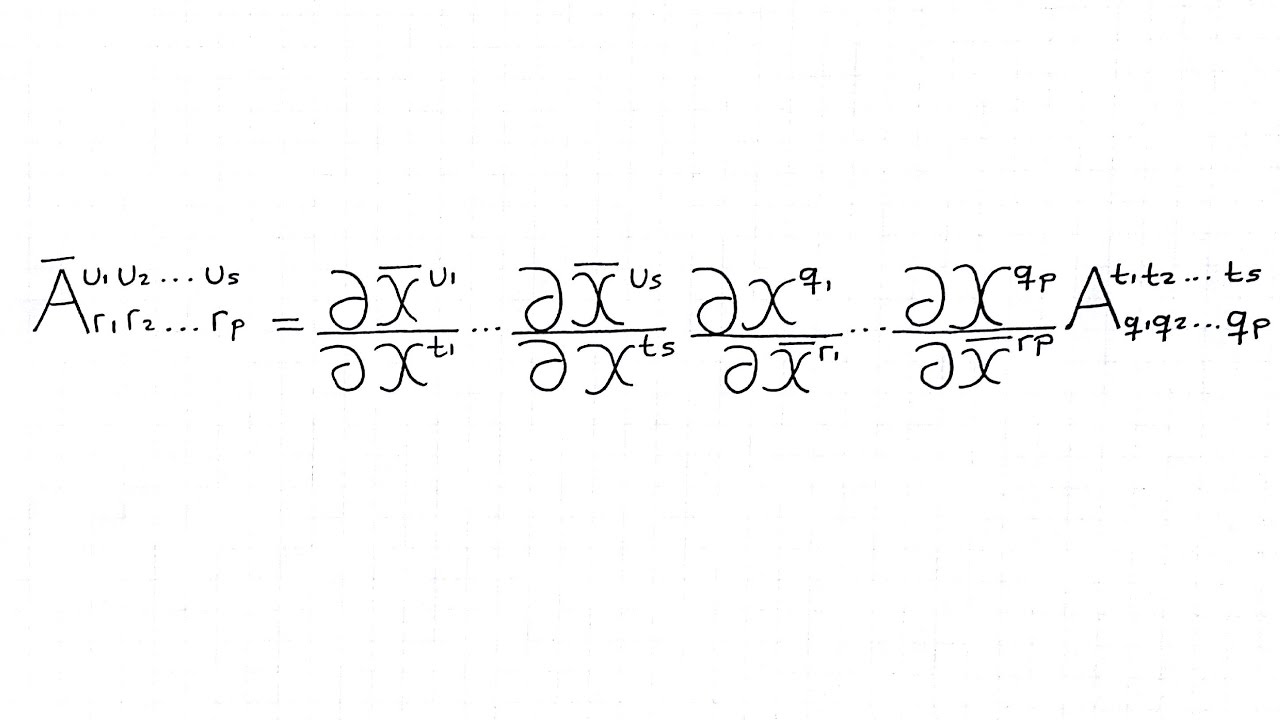 Ā^{u₁u₂...u_s}_{r₁r₂...r_p} = ∂x̄^{u₁}/∂x^{t₁} ... ∂x̄^{u_s}/∂x^{t_s} ∂x^{q₁}/∂x̄^{r₁} ... ∂x^{q_p}/∂x̄^{r_p} A^{t₁t₂...t_s}_{q₁q₂...q_p}